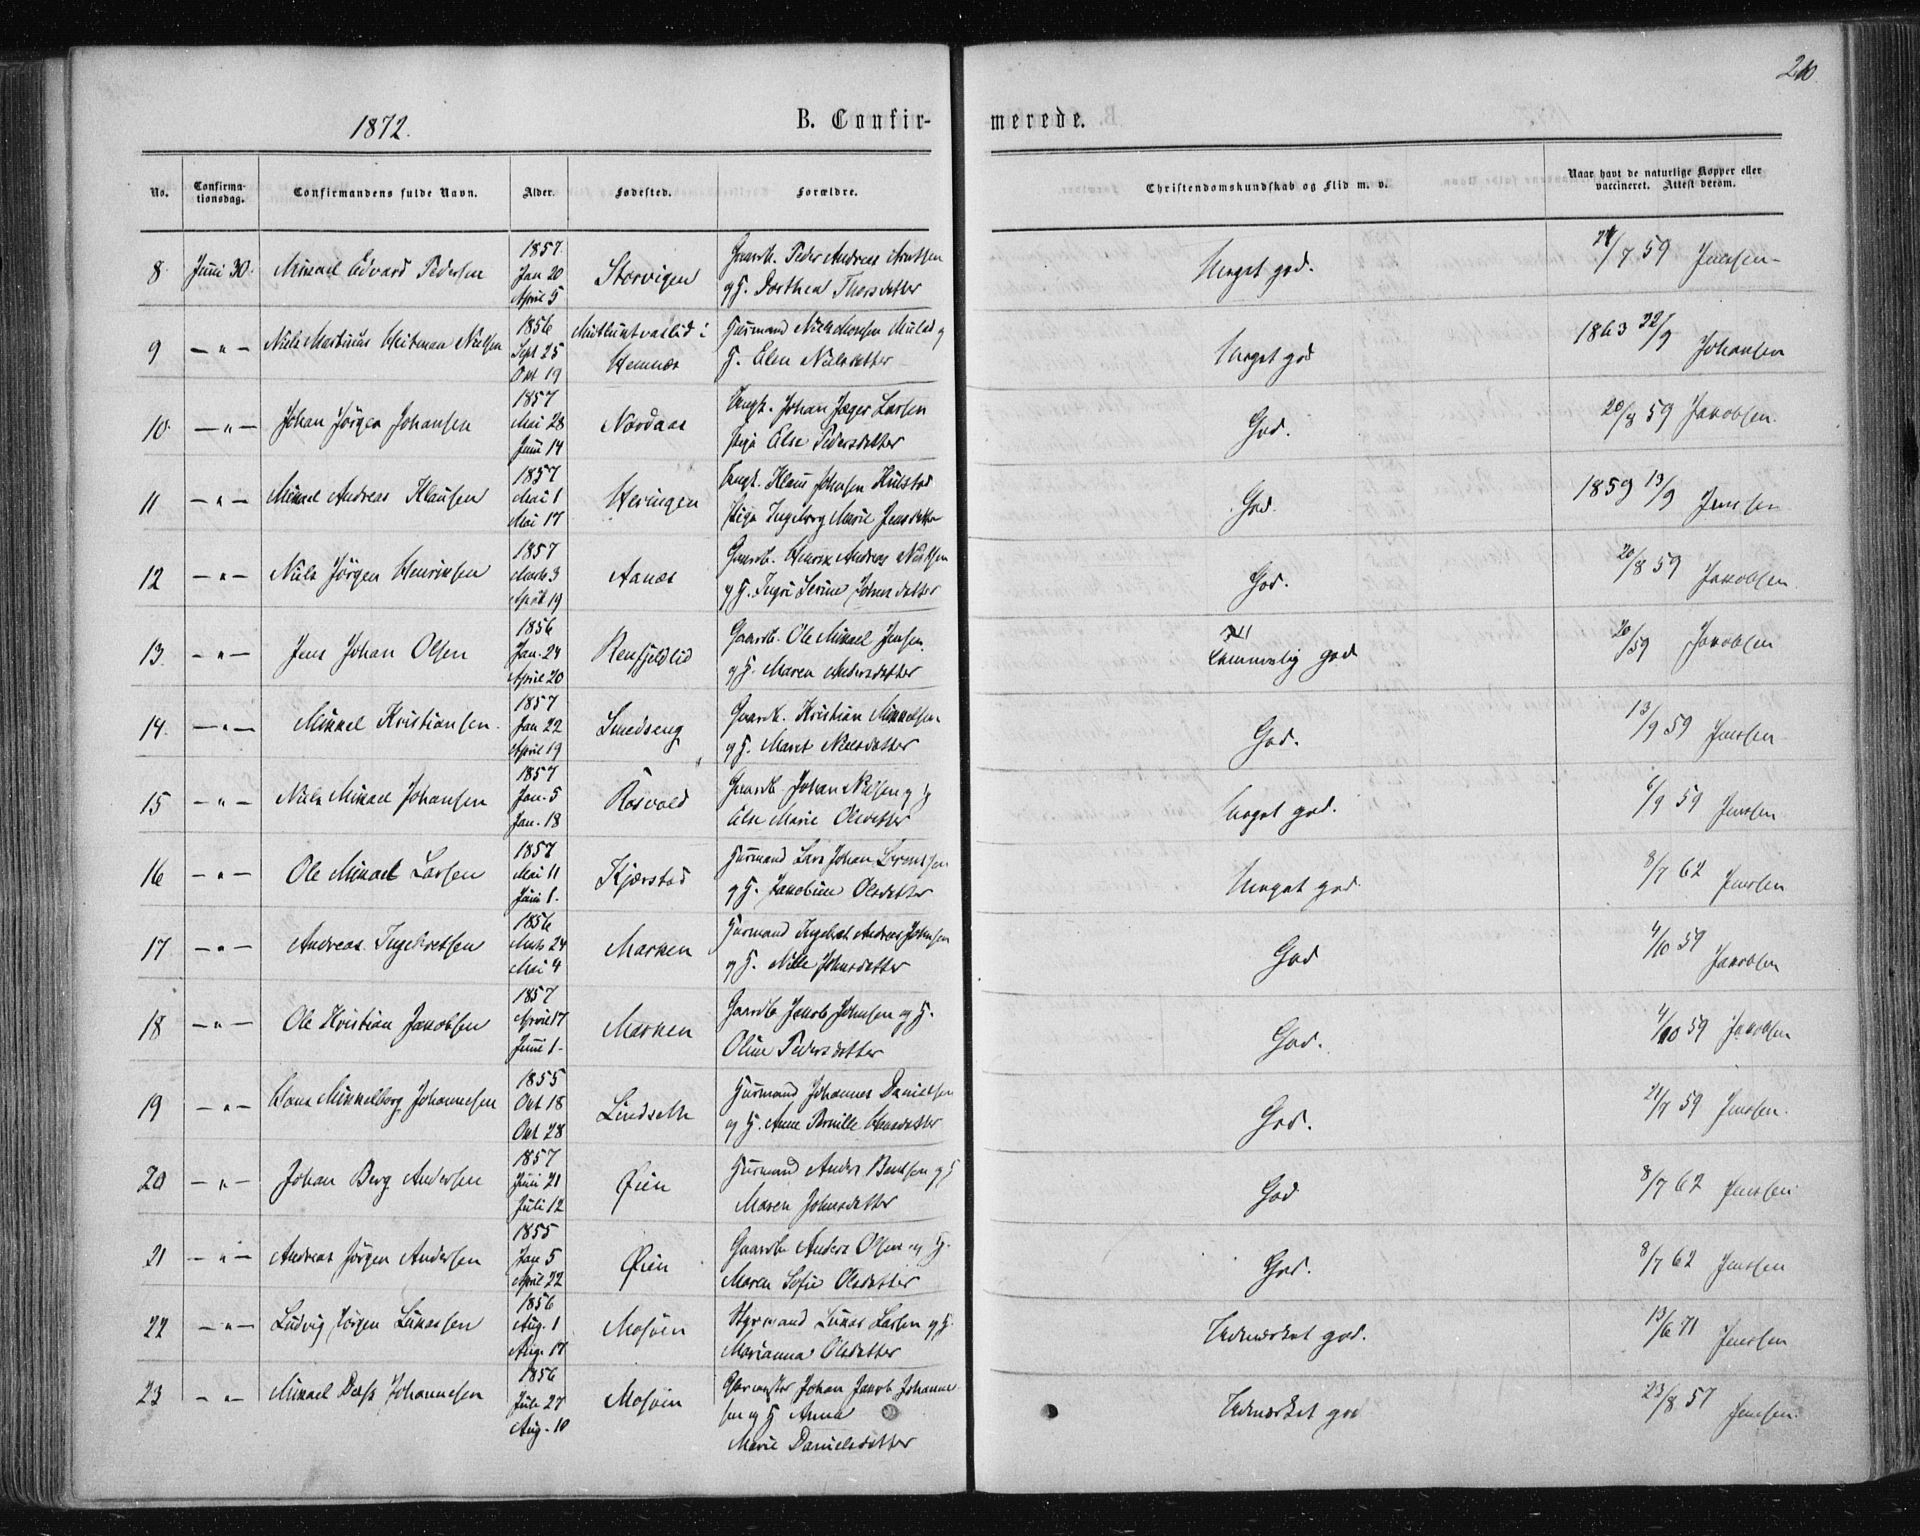 210.
1872.
B. Confirmerede.
No. Confirmationsdag. Confirmandens fulde Navn. Alder. Fødested. Forældre. Christendomskundskab og Flid m. v. Naar havt de naturlige Kopper eller vaccineret. Attest derom.
8. Juni 30. Mikael Edvard Pedersen 1857. Jan 20 April 5 Storvigen Gaardb. Peder Andreas
og H. Dorthea Thorsdatter Meget god. 7 59 Jenssen
9 — " — Niels Martinus Heitman Nielsen 1856 Sept 25 Okt 19 i Hemnæs Huusmand Niels
H. Elen Nielsdatter Meget god 1863 22/9 Johansen
10. — " — Johan Jörgen Johansen 1857 Mai 28 Juni 14 Nordaas Ungk. Johan Jæger Larsen
Pige Else Pedersdatter God. 20/8 59 Jakobsen.
11 — " — Mikael Andreas Klausen 1857 Mai 1 Mai 17 Heringen Ungk. Klaus Johnsen Kulstad
Pige Ingeborg Marie Jensdatter God. 1859 13/9 Jenssen
12 — " — Niels Jörgen Henriksen 1857 Marts 3 April 19 Aanæs Gaardb. Henrik Andreas
og H. Ingri Serine Johnsdatter God. 20/8 59 Jakobsen.
13. — " — Jens Johan Olsen 1856 Jan. 24 April 20 Renfjeldlid Gaardb. Ole Mikael Jensen.
og H. Maren Andersdatter Temmelig god 20/ 59 Jakobsen
14. — " — Mikkel Kristiansen. 1857 Jan 22 April 19 Smedseng Gaardb. Kristian Mikkelsen
og H. Marit Nielsdatter God. 13/9 59 Jenssen
15 — " — Niels Mikael Johansen 1857 Jan. 5 Jan. 18 Rosvold Gaardb Johan Nielsen og H
Else Marie Olsdatter Meget god. 6/9 59 Jenssen.
16 — " — Ole Mikael Larsen 1857 Mai 11 Juni 1. Kjærstad Huusmand Lars Johan Lorentsen
og H. Jakobine Olsdatter Meget god. 8/7 62 Jenssen
17. — " — Andreas Ingebretsen 1856 Marts 24 Mai 4 Marken Huusmand Ingebret Andreas Johnsen
og H. Nille Johnsdatter God 4/10 59 Jakobsen
18 — " — Ole Kristian Jakobsen 1857 April 17 Juni 1. Marken Gaardb Jakob Johnsen og H.
Oline Pedersdatter God. 4/10 59 Jakobsen
19 — " — Hans Mikkelborg Johannesen 1855 Okt 18 Okt 28 Lindseth Huusmand Johannes Danielsen
og H. Anne Pernille Hansdatter God. 21/7 59 Jenssen.
20 — " — Johan Berg Andersen 1857 Juni 21 Juli 12 Øien Huusmand Anders Bentsen og H
Maren Johnsdatter God 8/7 62 Jenssen
21 — " — Andreas Jörgen Andersen 1855 Jan 5 April 22 Øien Gaardb Anders Olsen og H.
Maren Sofie Olsdatter God. 8/7 62 Jenssen
22 — " — Ludvig Jörgen Lukassen 1856 Aug. 1 Aug. 17 Mosöen Styrmand Lukas Larsen og H.
Marianna Olsdatter Udmærket god. 13/6 71 Jenssen
23 — " — Mikael Dass Johannesen 1856 Juli 27 Aug. 10 Mosöen Johan Jakob Johanne-
sen og H Anna
Marie Danielsdatter Udmærket god 23/8 57 Jenssen.